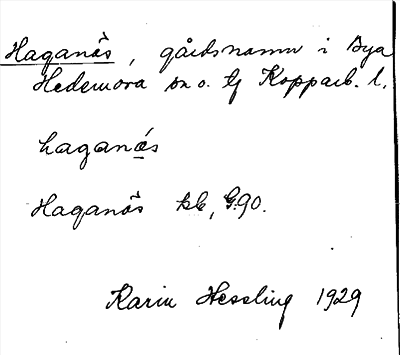 Haganäs, gårdsnamn i Bya
Hedemora sn o. tg Kopparb. l.
haganǟs
Haganäs kb, G.90.
Karin Hessling 1929